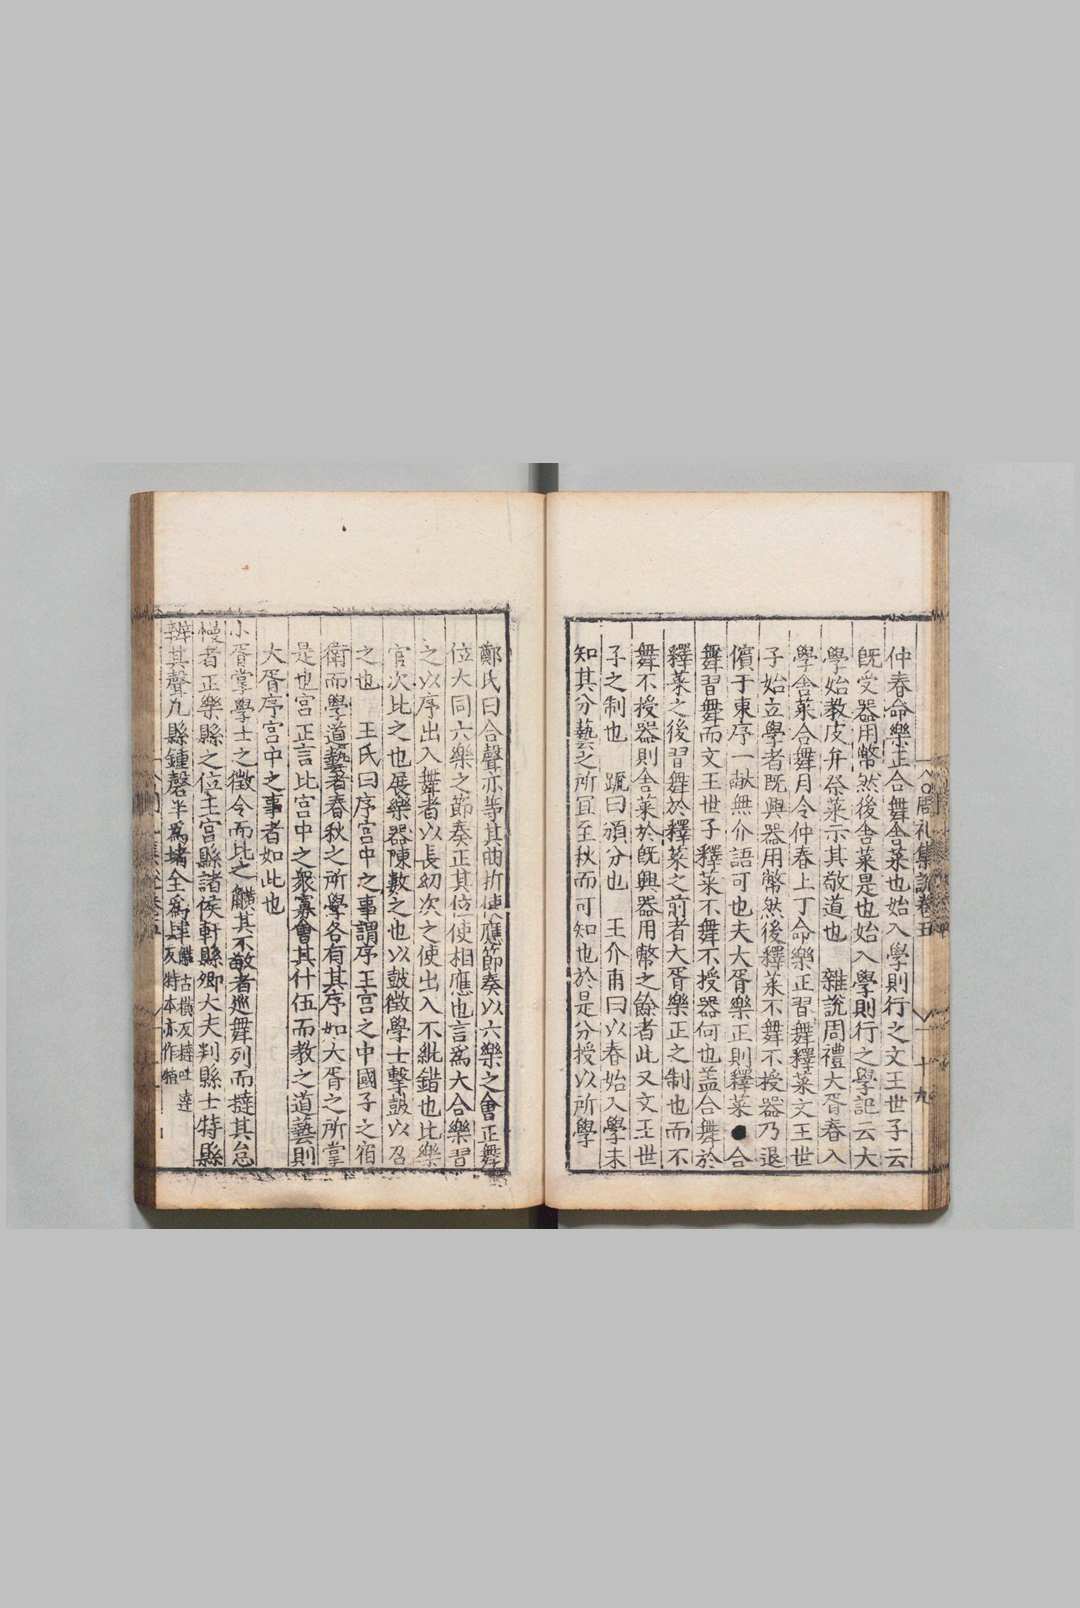 仲春命樂正合舞舎菜也始入學則行之文王世子云
旣受器用幣然後舎菜是也始入學則行之學記云大
學始教皮弁祭菜示其敬道也　雜說周禮大胥春入
學舎菜合舞月令仲春上丁命樂正習舞釋菜文王世
子始立學者旣興器用幣然後釋菜不舞不授器乃退
儐于東序一獻無介語可也夫大胥樂正則釋菜●合
舞習舞而文王世子釋菜不舞不授器何也盖合舞於
釋菜之後習舞於釋菜之前者大胥樂正之制也而不
舞不授器則舎菜於旣興器用幣之餘者此又文王世
子之制也　䟽曰頒分也　王介甫曰以春始入學未
知其分藝之所宜至秋而可知也於是分授以所學
周礼集說卷五　十九
鄭氏曰合聲亦等其曲折使應節奏以六樂之會正舞
位大同六樂之節奏正其位使相應也言爲大合樂習
之以序出入舞者以長幼次之使出入不紕錯也比樂
官次比之也展樂器陳數之也以鼓徵學士擊鼓以召
之也　王氏曰序宮中之事謂序王宮之中國子之宿
衛而學道藝者春秋之所學各有其序如大胥之所掌
是也宮正言比宮中之衆寡會其什伍而教之道藝則
大胥序宮中之事者如此也
小胥掌學士之徵令而比之觵其不敬者巡舞列而撻其怠
慢者正樂縣之位王宮縣諸侯軒縣卿大夫判縣士特縣
辨其聲凡縣鍾磬半爲堵全爲肆觵古橫反撻吐達反特本亦作犆